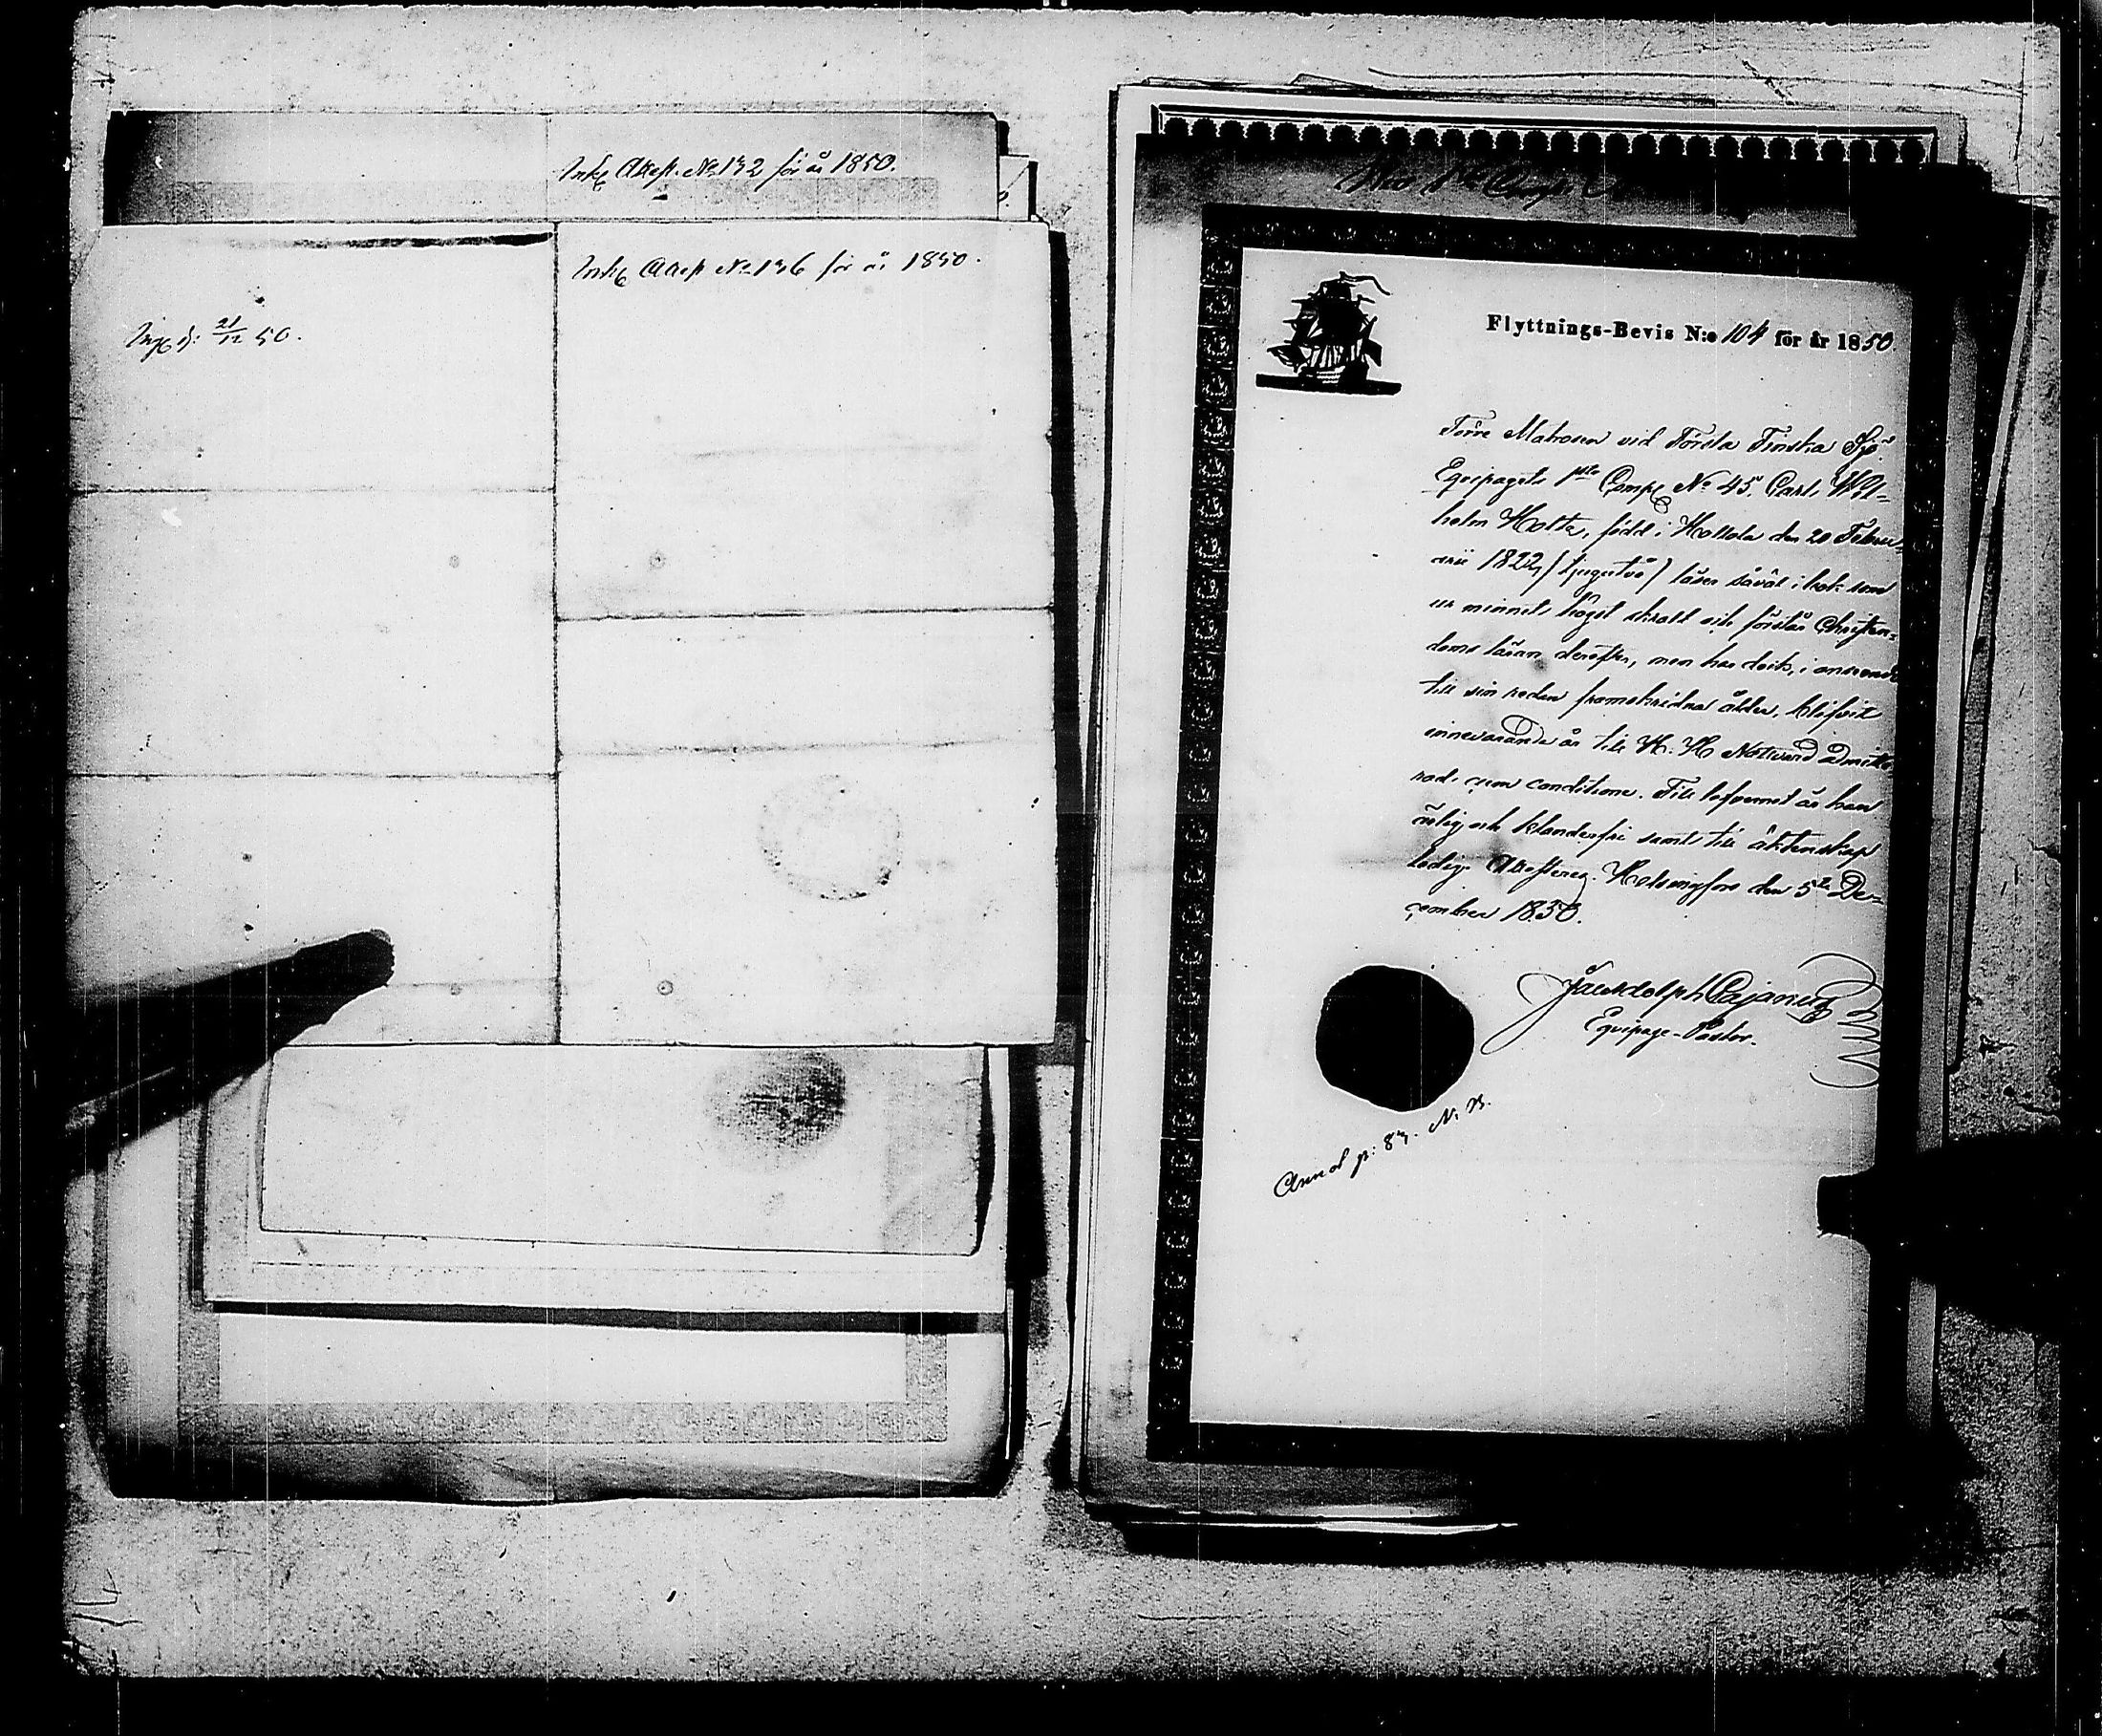 Inkg Attest. No 132 för år 1850.
Inkg Attest No 136 för år 1850.
Ingg d: 21/12 50.
1sta Comp.
Flyttnings-Bevis N:o 104 för år 1850.
Förre Matrosen vid Första Finska Sjö
Equipagets 1sta Compg No 45, Carl Wil-
helm Holte, född i Hollola den 20 Febru-
arii 1822, (tjugutvå) läser såväl i bok som
ur minnet högst skralt och förstår Christen-
doms läran derefter, men har dock, i anseende
till sin redan framskridna ålder, blifvit
innevarande år till H. H. Nattvard admitte-
rad cum conditione. Till lefvernet är han
ärlig och klanderfri samt till äktenskap
ledig. Attesterar. Helsingfors den 5te De-
cember 1850.
Cajanus
Equipage-Pastor.
Annot p: 87. N. B.